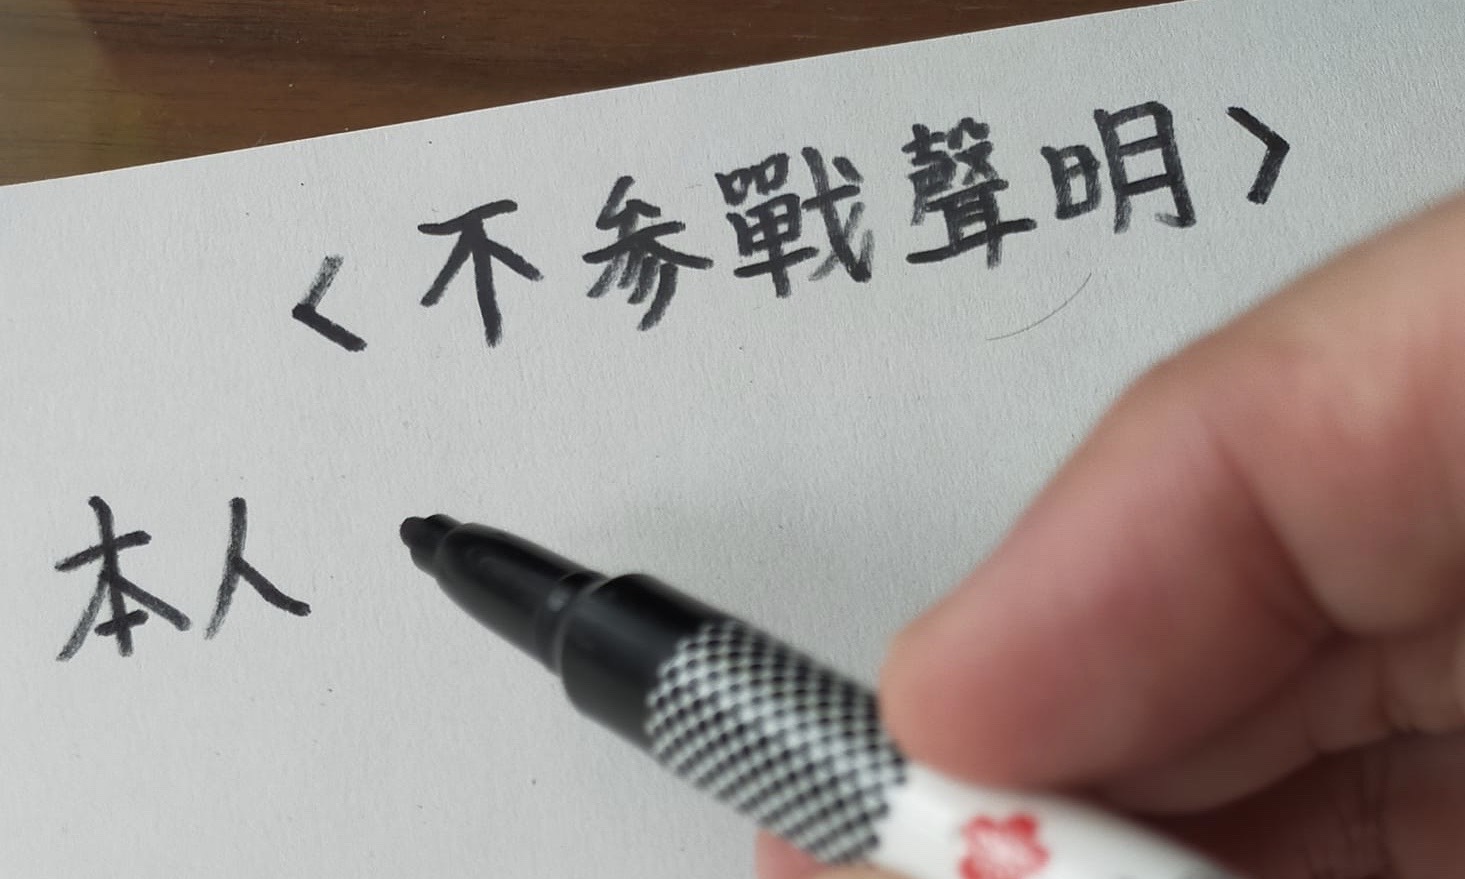 <不参戰聲明>
本人